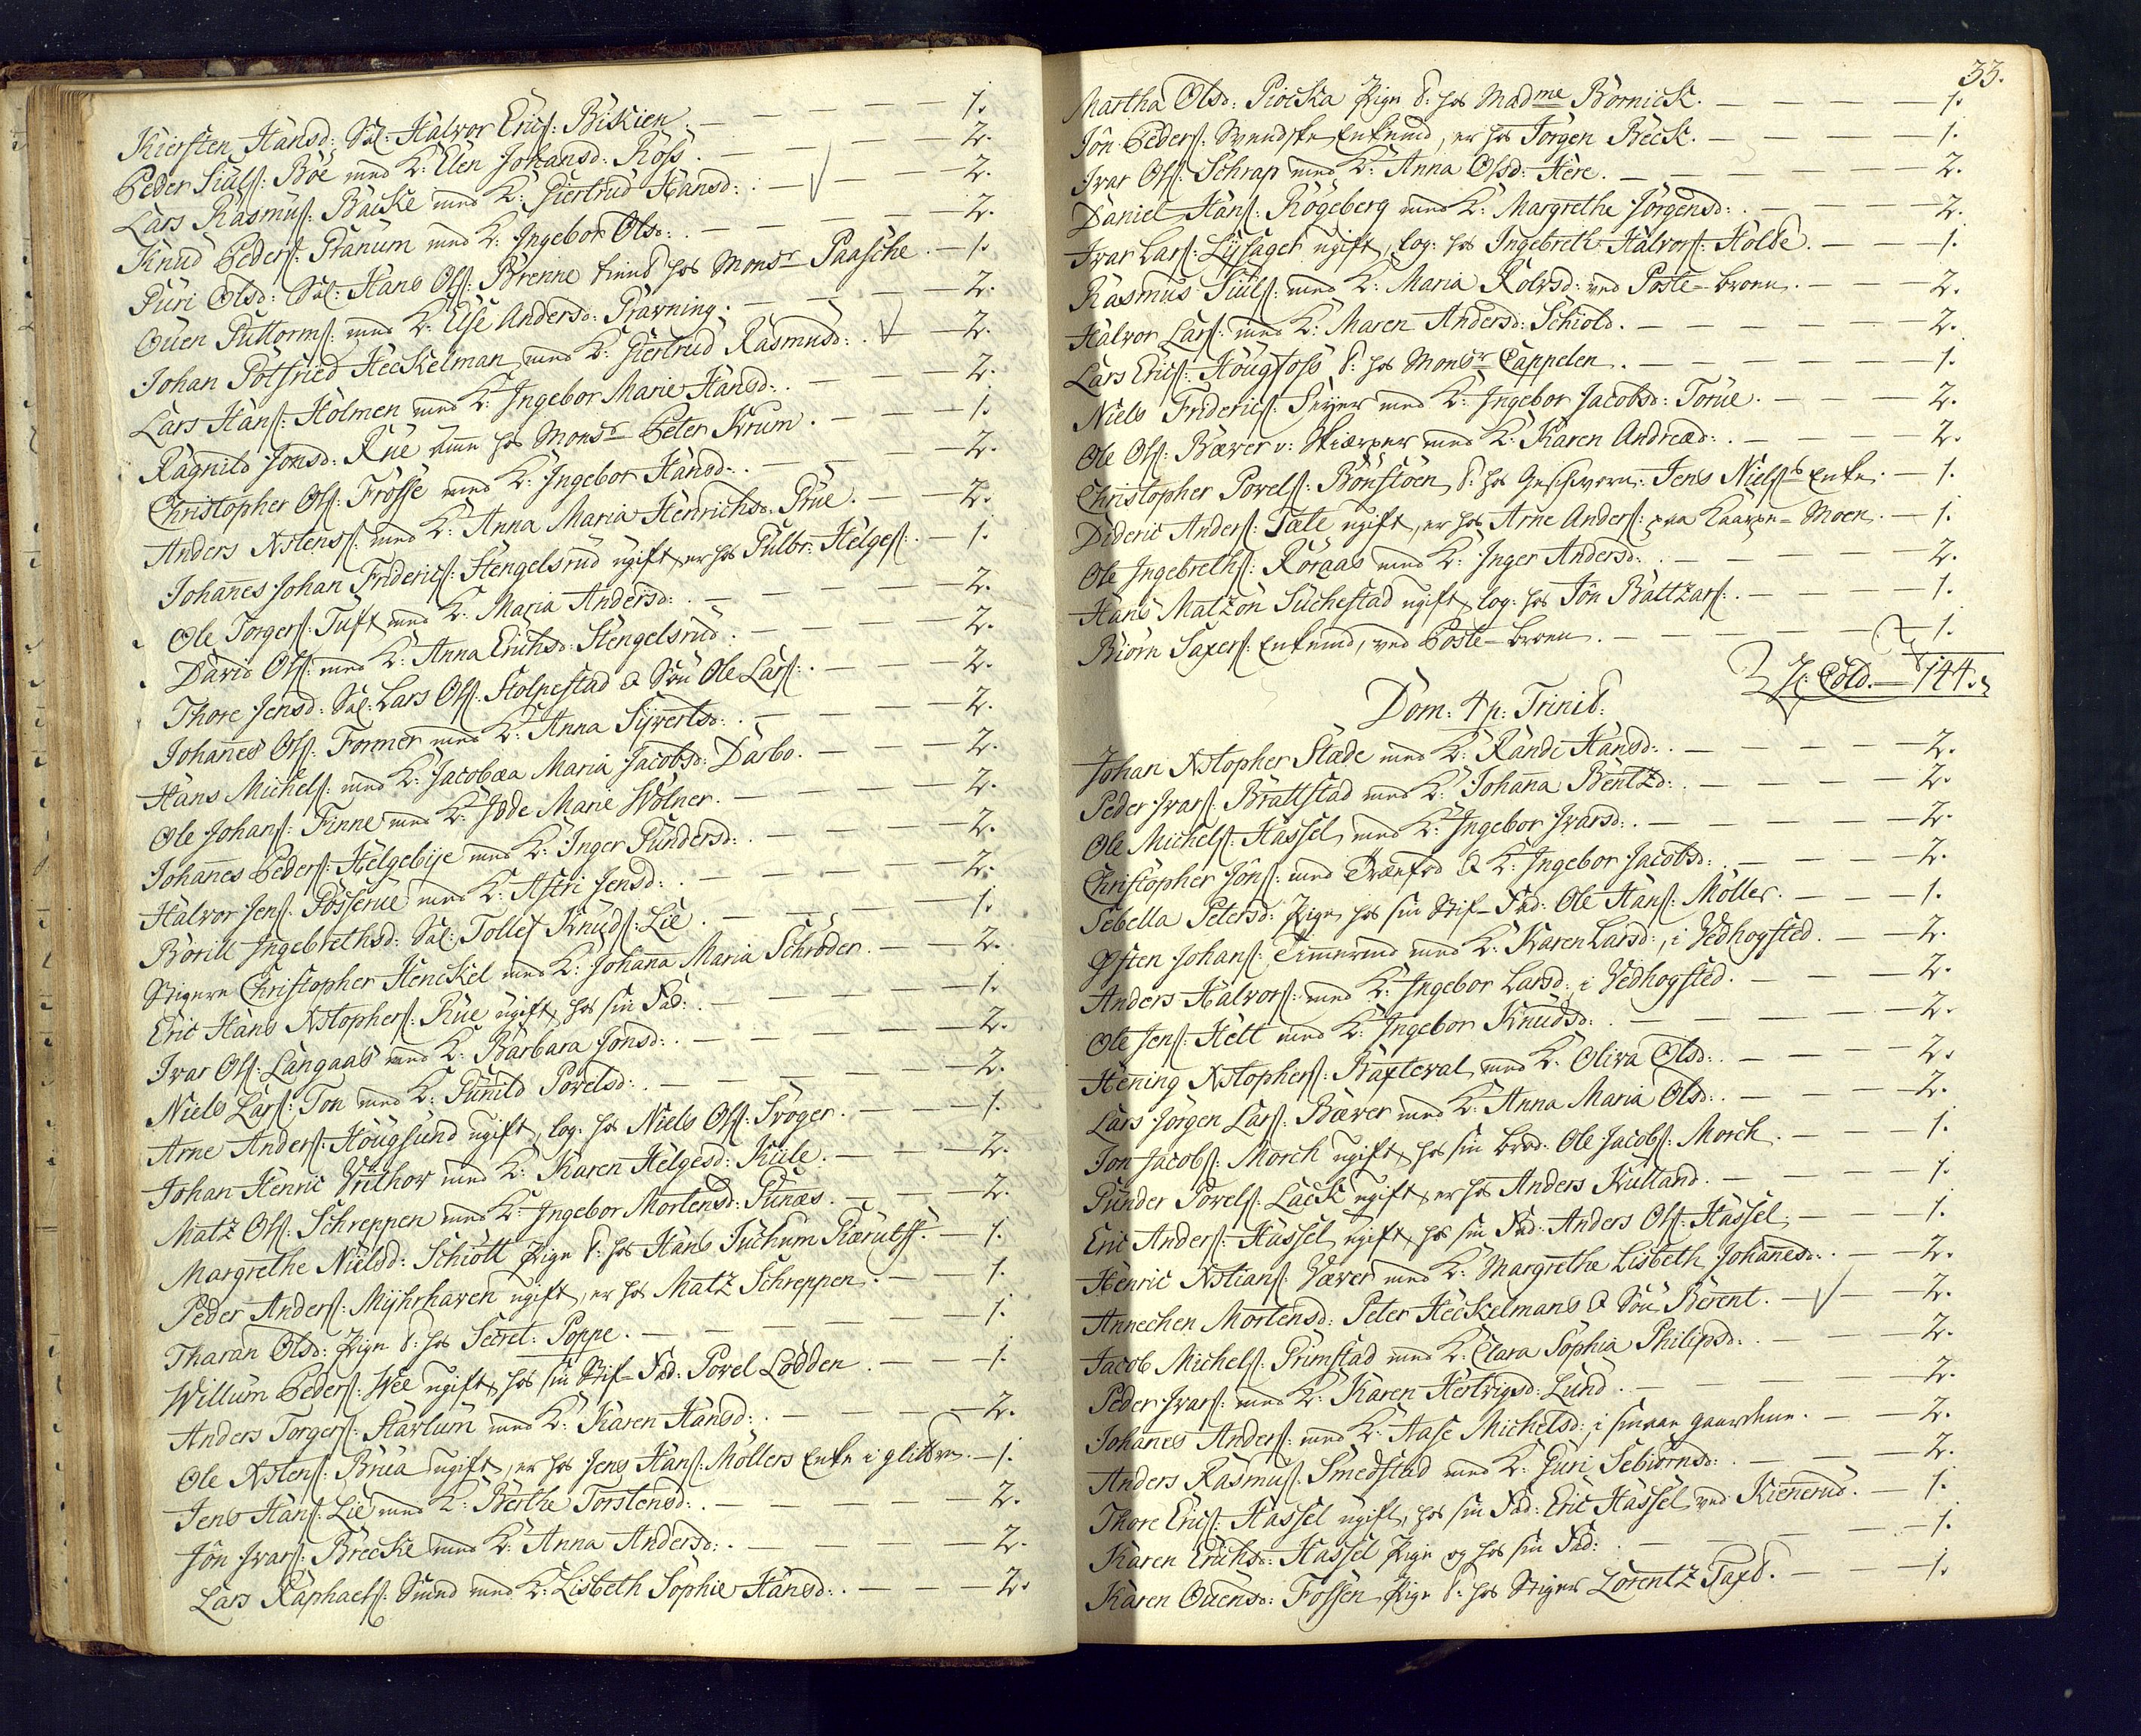 Kiersten Hansd: Sal: Halvor Erics: Bikien. — — — — — 1.
Peder Siuls: Böe med K: Elen Johansd: Koss. — — — — 2.
Lars Rasmus: Backe med K: Giertrud Hansd: — — — 2.
Knud Peders: Granum med K: Ingebor Olsd: — — — 2.
Guri Olsd: Sal: Hans Ols: Brenne tiener hos Monsr Paasche. — 1.
Ouen Guttorms: med K: Else Andersd: Gravning. — — 2.
Johan Gotfried Heckelman med K: Giertrud Rasmusd: — 2.
Lars Hans: Holmen med K: Ingebor Marie Hansd: — — 2.
Ragnild Jonsd: Rue Amme hos Monsr Peter Krum. — — 1.
Christopher Ols: Frosse med K: Ingebor Hansd: — — — 2.
Anders Xstens: med K: Anna Maria Henrichsd: Grue. — 2.
Johannes Johan Frideric: Hengelsrud ugift, er hos Gulbr: Helges: — 1.
Ole Torgers: Tuft med K: Maria Andersd: — — — 2.
David Ols: med K: Anna Erichsd: Hengelsrud. — — — 2.
Thore Jensd: Sal: Lars Ols: Stolpestad & Sön Ole Lars: — — 2.
Johannes Ols: Former med K: Anna Syvertsd: — — — 2.
Hans Michels: med K: Jacobæa Maria Jacobsd: Darbo. — — 2.
Ole Johans: Finne med K: Idde Marie Wölner. — — — 2.
Johannes Peders: Helgebÿe med K: Inger Gundersd: — — — 2.
Halvor Jens: Gosserue med K: Astri Jensd: — — — 2.
Börill Ingebrethsd: Sal: Tollef Knuds: Lie. — — — — 1.
Stigere Christopher Henckel med K: Johanna Maria Schröder. — 2.
Eric Hans Xstophers: Rue ugift, hos sin Fad: — — — 1.
Ivar Ols: Langaas med K: Barbara Jonsd: — — — 2.
Niels Lars: Ton med K: Gunild Povelsd: — — — — 2.
Arne Anders: Hougsund ugift, log: hos Niels Ols: Svöger. — — 1.
Johan Henric Vrithor med K: Karen Helgesd: Kule. — — 2.
Matz Ols: Schreppen med K: Ingebor Mortensd: Gunæs. — — 2.
Margrethe Nielsd: Schiött Pige t: hos Hans Juchum Kærulff. — 1.
Peder Anders: Mÿhrhaven ugift, er hos Matz Schreppen. — — 1.
Tharan Olsd: Pige t: hos Secret: Poppe. — — — — 1.
Willum Peders: Wee ugift, hos sin Stif-Fad: Povel Lodden. — — 1.
Anders Torgers: Havlum med K: Karen Hansd: — — — 2.
Ole Xstens: Bruea ugift, er hos Jens Hans: Möllers Enke i glitter. — 1.
Jens Hans: Lie med K: Berthe Torstensd: — — — — 2.
Jön Ivars: Brecke med K: Anna Andersd: — — — — 2.
Lars Raphaels: Smed med K: Lisbeth Sophie Hansd: — — 2.
33.
Martha Olsd: Piocka Pige t: hos Madme Börnick. — — — — 1.
Jön Peders: Svendske Enkemd, er hos Jörgen Beck. — — — — 1.
Ivar Ols: Schrap med K: Anna Olsd: Here. — — — — 2.
Daniel Hans: Rögeberg med K: Margrethe Jörgensd: — — — 2.
Ivar Lars: Lÿsager ugift, log: hos Ingebreth Halvors: Holde. — — 1.
Rasmus Siuls: med K: Maria Rolvsd: ved Poste-broen. — — 2.
Halvor Lars: med K: Maren Andersd: Schiold. — — — — 2.
Lars Erics: Hougfoss t: hos Monsr Cappelen. — — — — 1.
Niels Frideric: Seÿer med K: Ingebor Jacobsd: Torue. — — — 2.
Ole Ols: Bæver v: Skierper med K: Karen Andread: — — — 2.
Christopher Povels: Bönstöen t: hos Geschworn: Jens Niels:s Enke. — 1.
Dideric Anders: Tæte ugift, er hos Arne Anders: paa Kaarpe-Moen. — 1.
Ole Ingebreths: Röraas med K: Inger Andersd: — — — 2.
Hans Matzön Suchestad ugift, log: hos Jön Baltzars: — — 1.
Biörn Saxers: Enkemd, ved Poste-broen. — — — — 1.
144.
Dom: 4 p: Trinit:
Johan Xstopher Stade med K: Randi Hansd: — — — 2.
Peder Ivars: Brattstad med K: Johana Bentzd: — — — 2.
Ole Michels: Hassel med K: Ingebor Ivarsd: — — — 2.
Christopher Jöns: med Træefod & K: Ingebor Jacobsd: — — 2.
Sebella Petersd: Pige hos sin Stif-Fad: Ole Hans: Möller. — — 1.
Östen Johans: Timmermd med K: Karen Larsd: i Vedhogsted. — — 2.
Anders Halvors: med K: Ingebor Larsd: i Vedhogsted. — — 2.
Ole Jens: Helt med K: Ingebor Knudsd: — — — 2.
Hening Xstophers: Baxteval med K: Oliva Olsd: — — — 2.
Lars Jörgen Lars: Bæver med K: Anna Maria Olsd: — — 2.
Jon Jacobs: Morch ugift, hos sin brod: Ole Jacobs: Morch. — — 1.
Gunder Povels: Lack ugift, er hos Anders Kulland. — — — 1.
Eric Anders: Hassel ugift, hos sin Fad: Anders Ols: Hassel. — — 1.
Henric Xstians: Væver med K: Margrethe Lisbeth Johanesd: — — 2.
Annechen Mortensd: Peter Heckelmans & Sön Berent. — — 2.
Jacob Michels: Grimstad med K: Clara Sophia Philipsd: — — 2.
Peder Ivars: med K: Karen Hertvigsd: Lund. — — — 2.
Johannes Anders: med K: Aase Michelsd: i smaae gaardene. — — 2.
Anders Rasmus: Smedstad med K: Guri Sebiörnsd: — — — 2.
Thore Erics: Hassel ugift, hos sin Fad: Eric Hassel ved Kienerud. — 1.
Karen Erichsd: Hassel Pige og hos sin Fad: — — — 1.
Karen Ouensd: Fossen Pige t: hos Stiger Lorentz Taxt. — — 1.